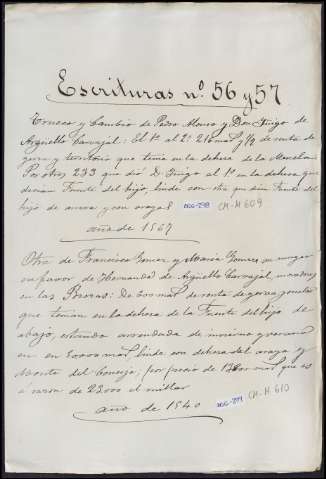 Escrituras nº. 56 y 57
Trueco y Cambio de Pedro Mouro y Don Iñigo de
Arguello Carvajal: El 1º al 2º 216 mrs y 1/2 de renta de
yerva y territorio que tenia en la dehesa de la Marcela
Por otros 233 que dió D. Iñigo al 1º en la dehesa que
decian Fuente del hijo, linde con otra que dicen Fuente del
hijo de arriva y con arayal
DOC-290 CM-M 609
año de 1567
Otra de Francisco Gomez y Maria Gomez su muger
en favor de Hernando de Arguello Carvajal
en las Brozas: De 600 mrs de renta de yerva
que tenian en la dehesa de la Fuente del hijo de
abajo, estando arrendada de invierno y verano
en mrs, linde con dehesa del arayal y
Monte del Concejo; por precio de mrs que es
á razon de 22000 el millar
DOC-291 CM-M 610
año de 1540